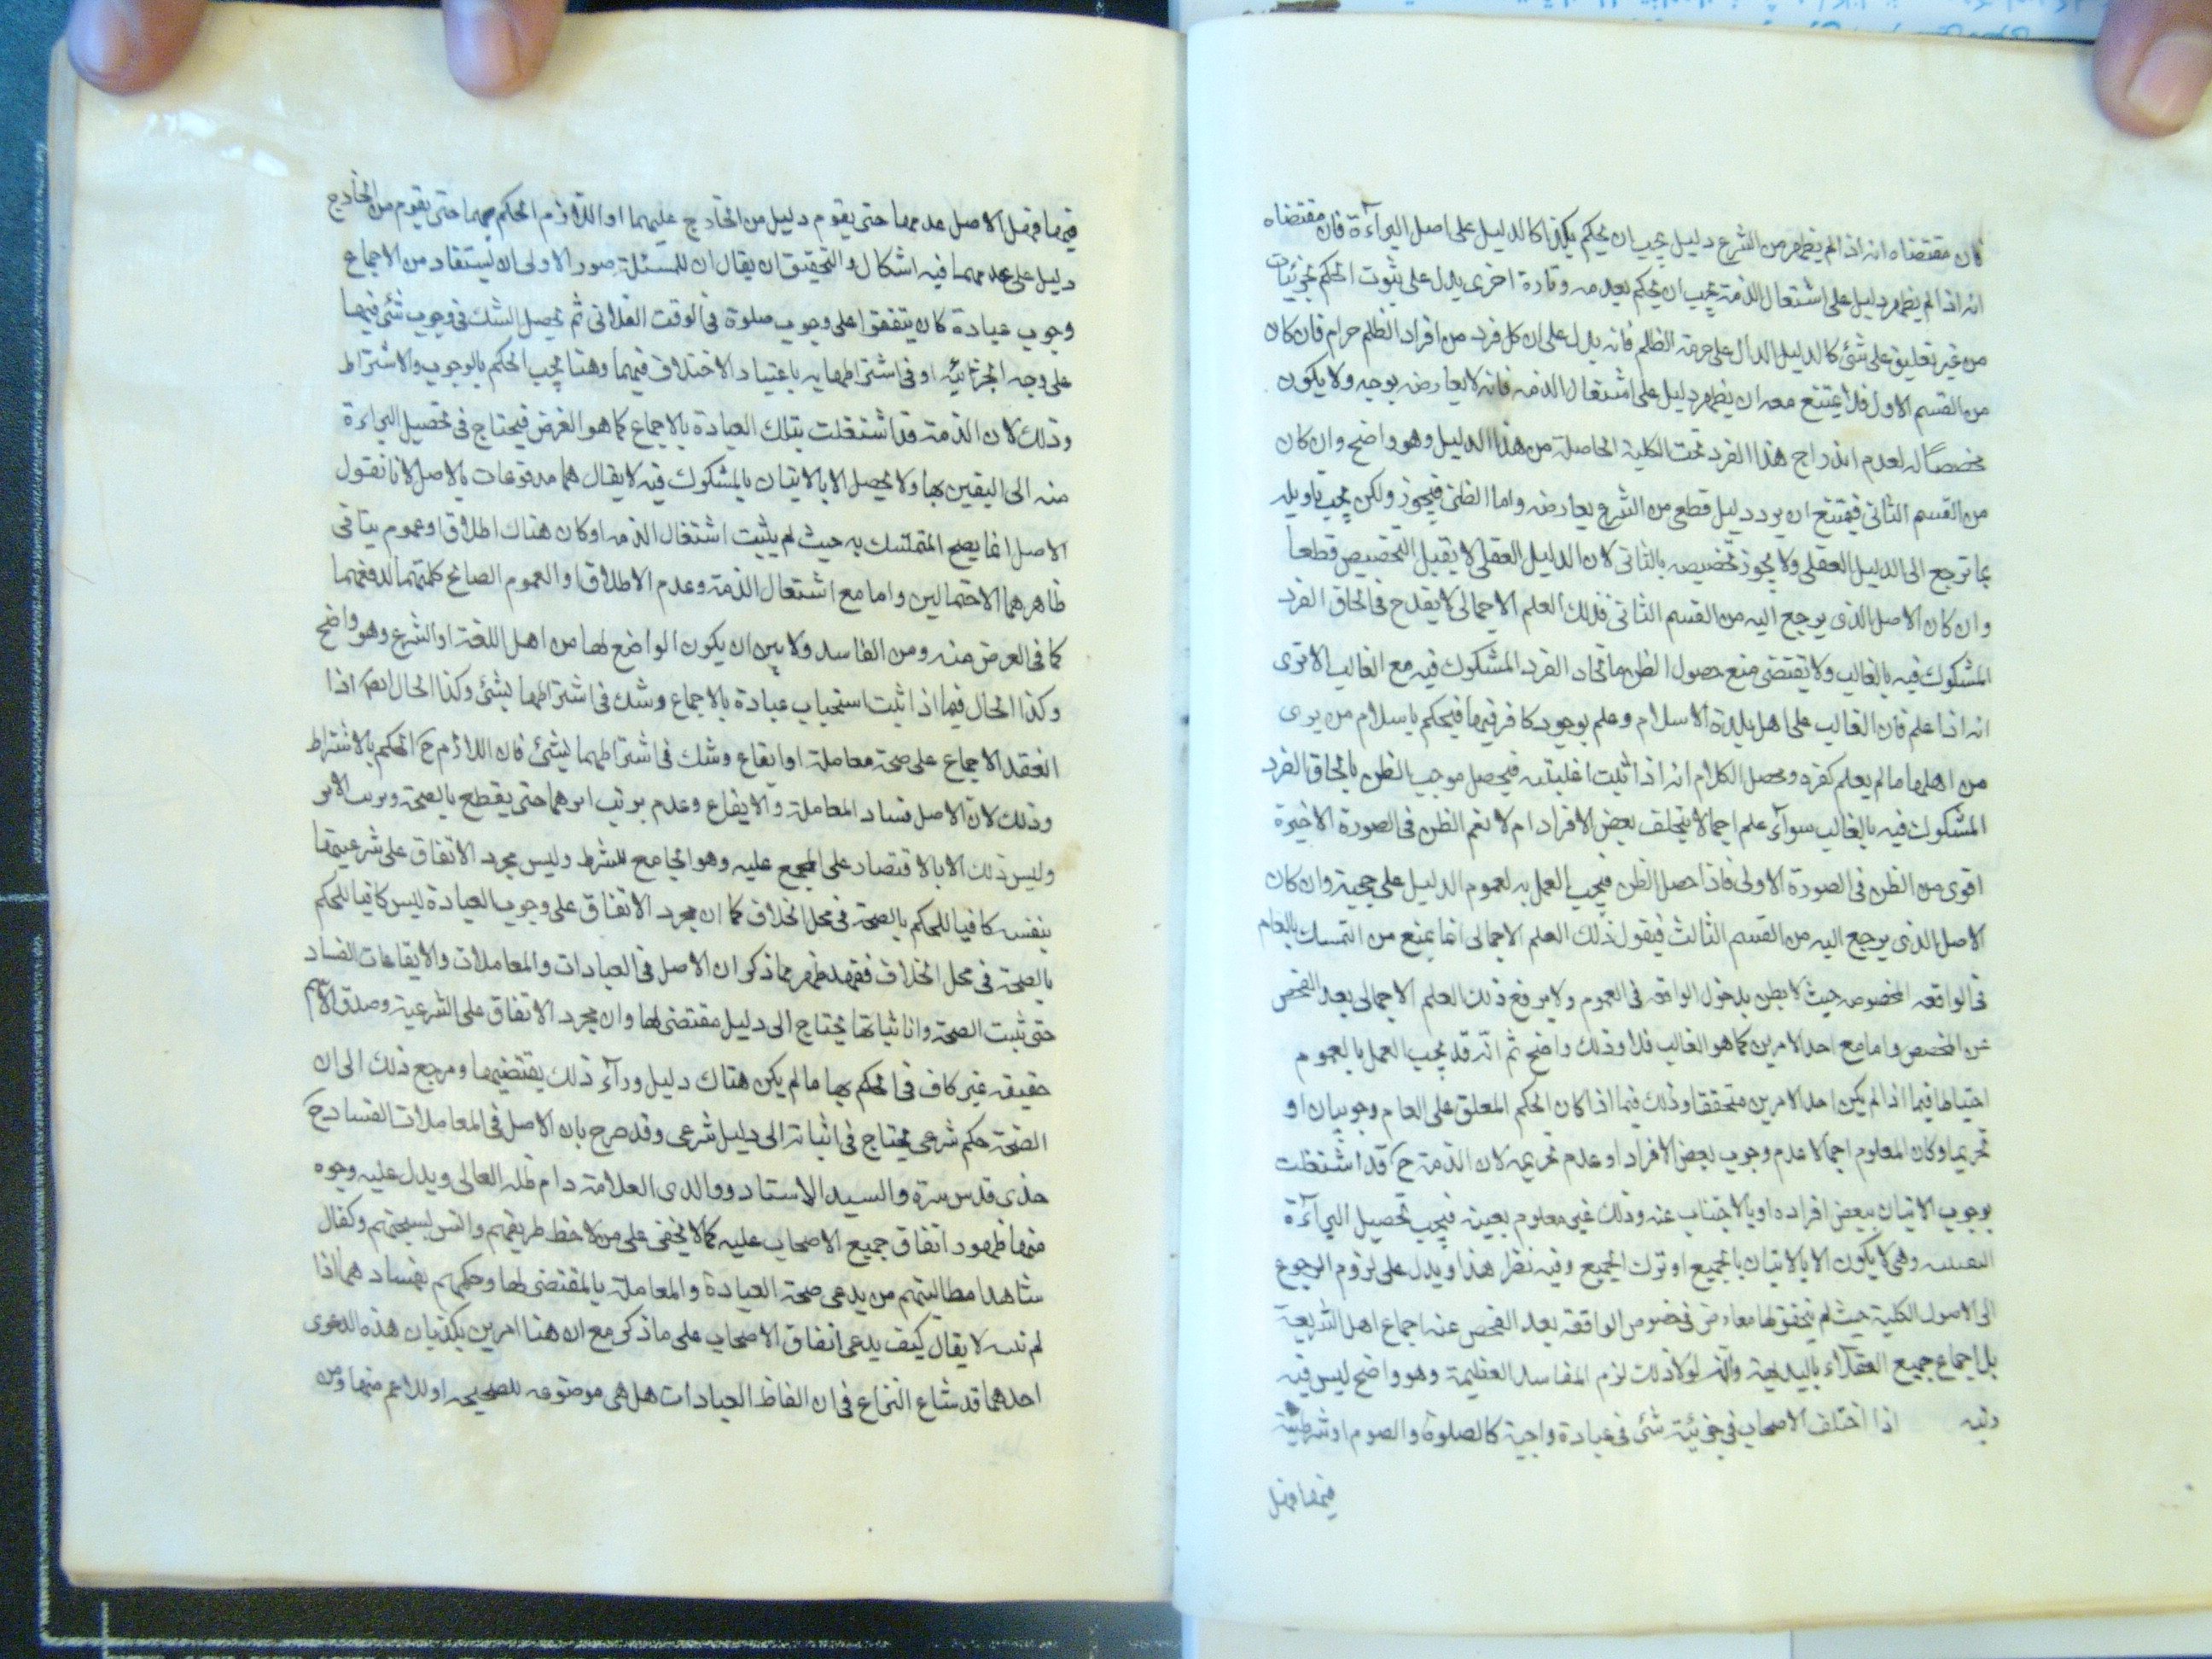 فان مقتضاه انه اذا لم يظهر من الشرع دليل يجب ان يحكم بكذا كالدليل على اصل البرآءة فان مقتضاه
انه اذا لم يظهر دليل على اشتغال الذمة يجب ان يحكم بعدمه وتارة اخرى يدل على ثبوت الحكم لجزئيات
من غير تعليق على شئ كالدليل الدال على حرمة الظلم فانه يدل على ان كل فرد من افراد الظلم حرام فان كان
من القسم الاول فلا يمتنع معه ان يظهر دليل على اشتغال الذمه فانه لا يعارضه بوجه ولا يكون
مخصصا له لعدم اندراج هذا الفرد تحت الكلية الحاصلة من هذا الدليل وهو واضح وان كان
من القسم الثانى فيمتنع ان يرد دليل قطعى من الشرع يعارضه واما الظنى فيجوز ولكن يجب تاويله
بما ترجع الى الدليل العقلى ولا يجوز تخصيصه بالثانى لان الدليل العقلى لا يقبل التخصيص قطعا
وان كان الاصل الذى يرجع اليه من القسم الثانى فذلك العلم الاجمالى لا يقدح فى الحاق الفرد
المشكوك فيه بالغالب ولا يقتضى منع حصول الظن باتحاد الفرد المشكوك فيه مع الغالب الا ترى
انه اذا علم فان الغالب على اهل بلدة الاسلام وعلم بوجود كافر فيها فيحكم باسلام من يرى
من اهلها ما لم يعلم كفره ومحصل الكلام انه اذا ثبت اغلبيته فيحصل موجب الظن بالحاق الفرد
المشكوك فيه بالغالب سوآء علم اجمالا بتخلف بعض الافراد ام لا نعم الظن فى الصورة الاخيرة
اقوى من الظن فى الصورة الاولى فاذا حصل الظن فيجب العمل به لعموم الدليل على حجية وان كان
الاصل الذى يرجع اليه من القسم الثالث فيقول ذلك العلم الاجمالى انما يمنع من التمسك بالعام
فى الواقعه المخصوصه حيث لا يظن بدخول الواقعه فى العموم ولا يرفع ذلك العلم الاجمالى بعد الفحص
عن المخصص واما مع احد الامرين كما هو الغالب فلا وذلك واضح ثم انه قد يجب العمل بالعموم
احتياطا فيما اذا لم يكن احد الامرين متحققا وذلك فيما اذا كان الحكم المعلق على العام وجوبيا او
تحريما وكان المعلوم اجمالا عدم وجوب بعض الافراد او عدم تحريمه لان الذمة ح قد اشتغلت
بوجوب الاتيان ببعض افراده او بالاجتناب عنه وذلك غير معلوم بعينه فيجب تحصيل البرآءة
وهى لا يكون الا بالاتيان بالجميع او ترك الجميع وفيه نظر هذا ويدل على لزوم الرجوع
الى الاصول الكلية حيث لم يتحقق لها معارض فى خصوص الواقعة بعد الفحص عنه اجماع اهل الشريعة
بل اجماع جميع العقلاء بالبديهة وانه لولا ذلك لزم المفاسد العظيمة وهو واضح ليس فيه
اذا اختلف الاصحاب فى جزئية شئ فى عبادة واجبة كالصلوة والصوم او شرطيته
فيها فهل
فيها فهل الاصل عدمها حتى يقوم دليل من الخارج عليهما او اللازم الحكم بهما حتى يقوم من الخارج
دليل على عدمهما فيه اشكال والتحقيق ان يقال ان للمسئلة صور الاولى ان يستفاد من الاجماع
وجوب عبادة كان يتفقوا على وجوب صلوة فى الوقت الفلانى ثم يحصل الشك فى وجوب شئ فيها
على وجه الجزئية او فى اشتراطها به باعتبار الاختلاف فيهما وهنا يجب الحكم بالوجوب والاشتراط
وذلك لان الذمة قد اشتغلت بتلك العبادة بالاجماع كما هو الفرض فيحتاج فى تحصيل البراءة
منه الى اليقين بها ولا يحصل الا بالاتيان بالمشكوك فيه لا يقال هما مدفوعات بالاصل لانا نقول
الاصل انما يصح المتمسك به حيث لم يثبت اشتغال الذمه او كان هناك اطلاق او عموم ينافى
ظاهرهما الاحتمالين واما مع اشتغال الذمة وعدم الاطلاق او العموم الصالح لدفعهما
كما فى الفرض منه ومن الفاسد ولا بين ان يكون الواضع لها من اهل اللغة او الشرع وهو واضح
وكذا الحال فيما اذا ثبت استحباب عبادة بالاجماع وشك فى اشتراطها بشئ وكذا الحال ايضا اذا
انعقد الاجماع على صحة معاملة او ايقاع وشك فى اشتراطهما بشئ فان اللازم ح الحكم بالاشتراط
وذلك لان الاصل فساد المعاملة والايقاع وعدم ترتب اثرهما حتى يقطع بالصحة وترتب الاثر
وليس ذلك الا بالاقتصار على المجمع عليه وهو الجامع للشرط وليس مجرد الاتفاق على شرعيتها
بنفسه كافيا للحكم بالصحة فى محل الخلاف كما ان مجرد الاتفاق على وجوب العبادة ليس كافيا للحكم
بالصحة فى محل الخلاف فقد ظهر مما ذكر ان الاصل فى العبادات والمعاملات والايقاعات الفساد
حتى ثبت الصحة واثباتها يحتاج الى دليل مقتضى لها وان مجرد الاتفاق على الشرعية وصدق الاسم
حقيقه غير كاف فى الحكم بها ما لم يكن هناك دليل ورآء ذلك يقتضيها ومرجع ذلك الى ان
الصحة حكم شرعى يحتاج فى اثباته الى دليل شرعى وقد صرح بان الاصل فى المعاملات الفساد ح
جدى قدس سره والسيد الاستاد ووالدى العلامة دام ظله العالى ويدل عليه وجوه
منها ظهور اتفاق جميع الاصحاب عليه كما لا يخفى على من لاحظ طريقتهم وانس بسجيتهم وكفاك
شاهدا مطالبتهم من يدعى صحة العبادة والمعاملة بالمقتضى لها وحكمهم بفساد هما اذا
لا يقال كيف يدعى اتفاق الاصحاب على ما ذكر مع ان هنا امرين يكذبان هذه الدعوى
احدهما قد شاع النزاع فى ان الفاظ العبادات هل هى موضوعه للصحيحه او للاعم منها ومن